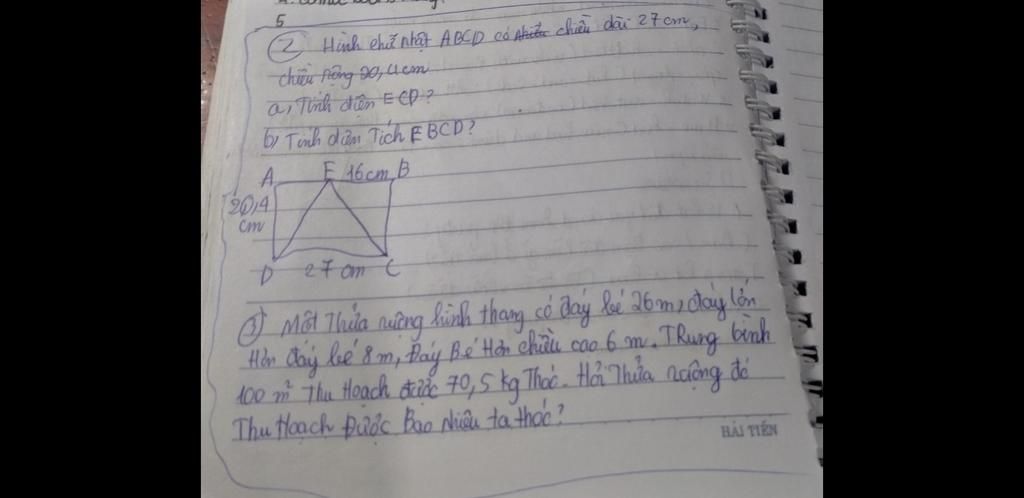 5
② Hình chữ nhật ABCD có chiều dài 27 cm,
chiều rộng 20,4 cm
a, Tính diện ECD?
b, Tính diện Tích EBCD?
A E 16cm B
20,4
cm
D 27 cm C
③ Một Thửa ruộng hình thang có đáy bé 26 m, đáy lớn
Hơn đáy bé 8 m, Đáy Bé Hơn chiều cao 6 m. TRung bình
100 m² Thu Hoạch được 70,5 kg Thóc. Hỏi Thửa ruộng đó
Thu Hoạch Được Bao Nhiêu tạ thóc?
HẢI TIẾN